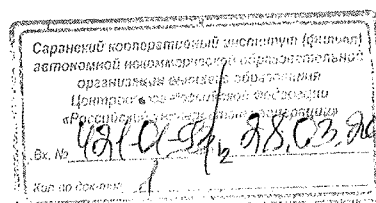 Саранский кооперативный институт (филиал)
автономной некоммерческой образовательной
организации высшего образования
Центросоюза Российской Федерации
«Российский университет кооперации»
Вх. № 28.03.20
Кол-во док-тов